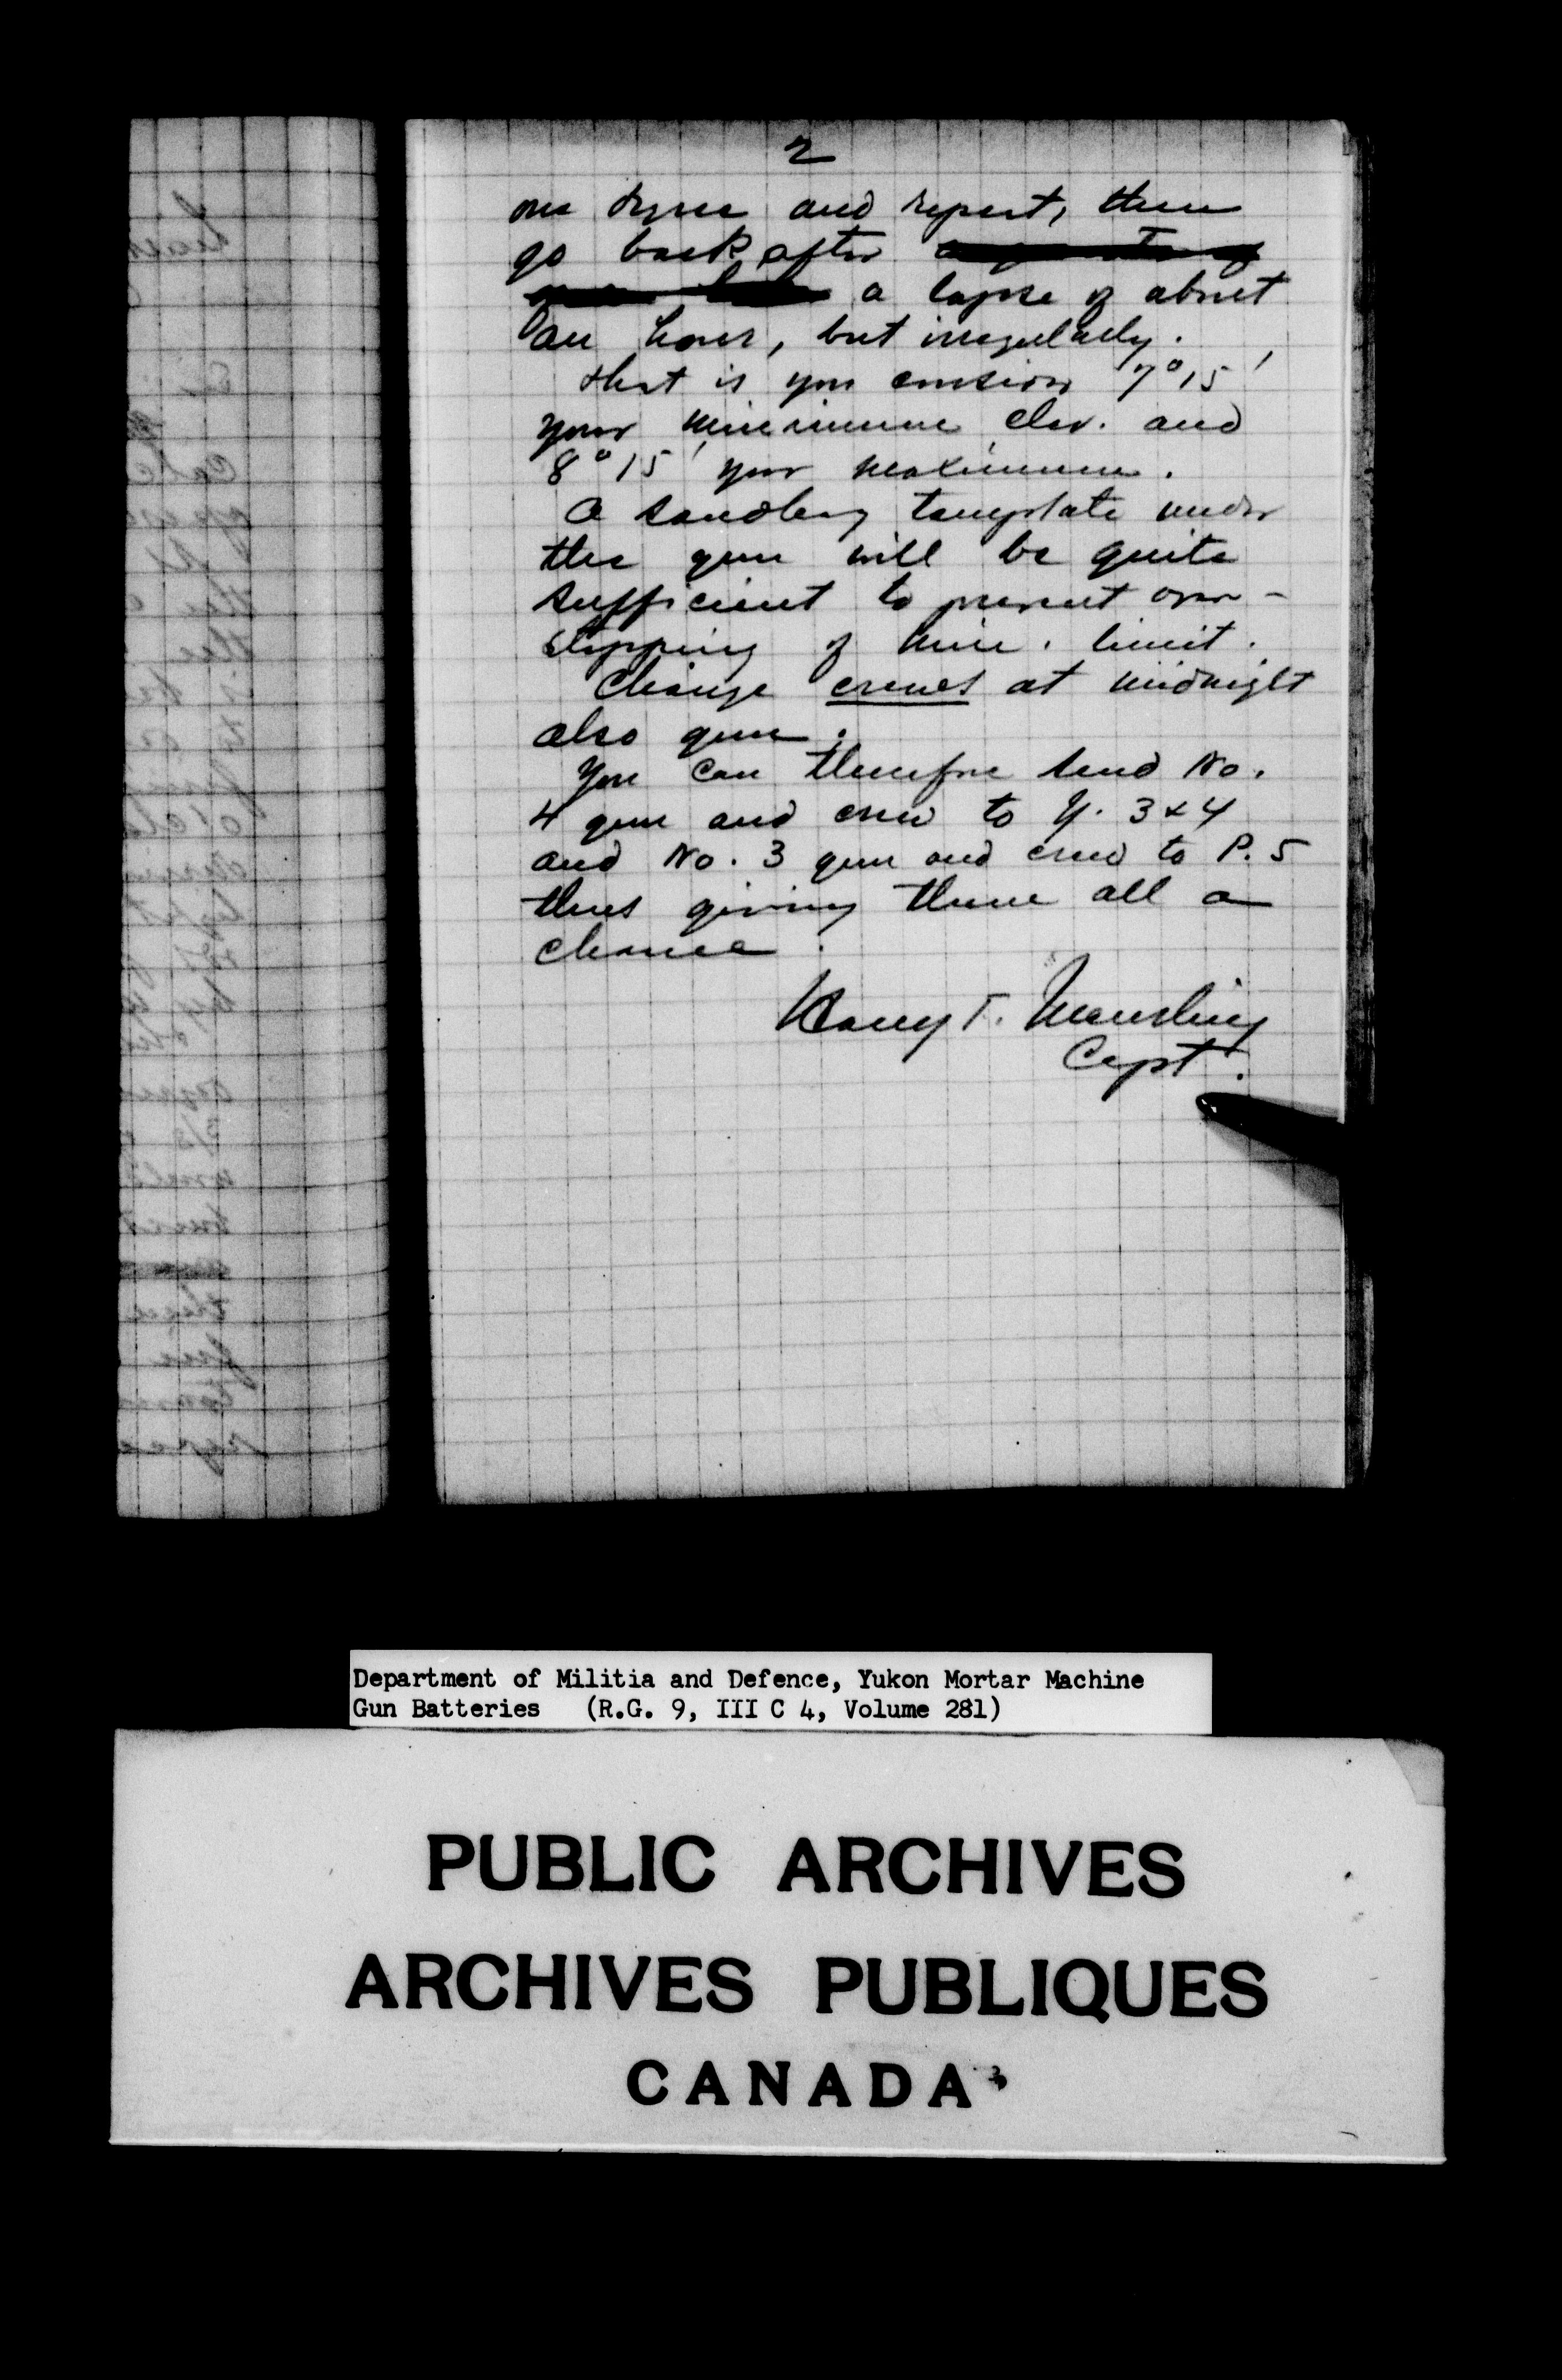 2
one degree and repeat, then
go back after
a lapse of about
an hour, but irregularly.
that is you consider 7° 15'
your minimum elev. and
8° 15' your maximum.
A sandbag template under
the gun will be quite
sufficient to prevent over-
stepping of min. limit.
Change crews at midnight
also gun.
You can therefore send No.
4 gun and crew to Y. 3 & 4
and No. 3 gun and crew to P. 5
thus giving them all a
chance.
Harry F. Meurling
Capt.
Department of Militia and Defence, Yukon Mortar Machine
Gun Batteries (R.G. 9, III C 4, Volume 281)
PUBLIC ARCHIVES
ARCHIVES PUBLIQUES
CANADA